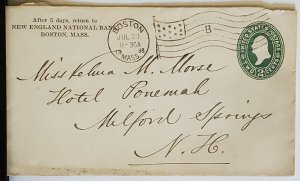 After 5 days, return to
NEW ENGLAND NATIONAL BANK,
BOSTON, MASS.
BOSTON
JUL 29
8-30A
MASS.
B
UNITED STATES
2
Miss Velma M. Morse
Hotel Ponemah
Milford Springs
N. H.